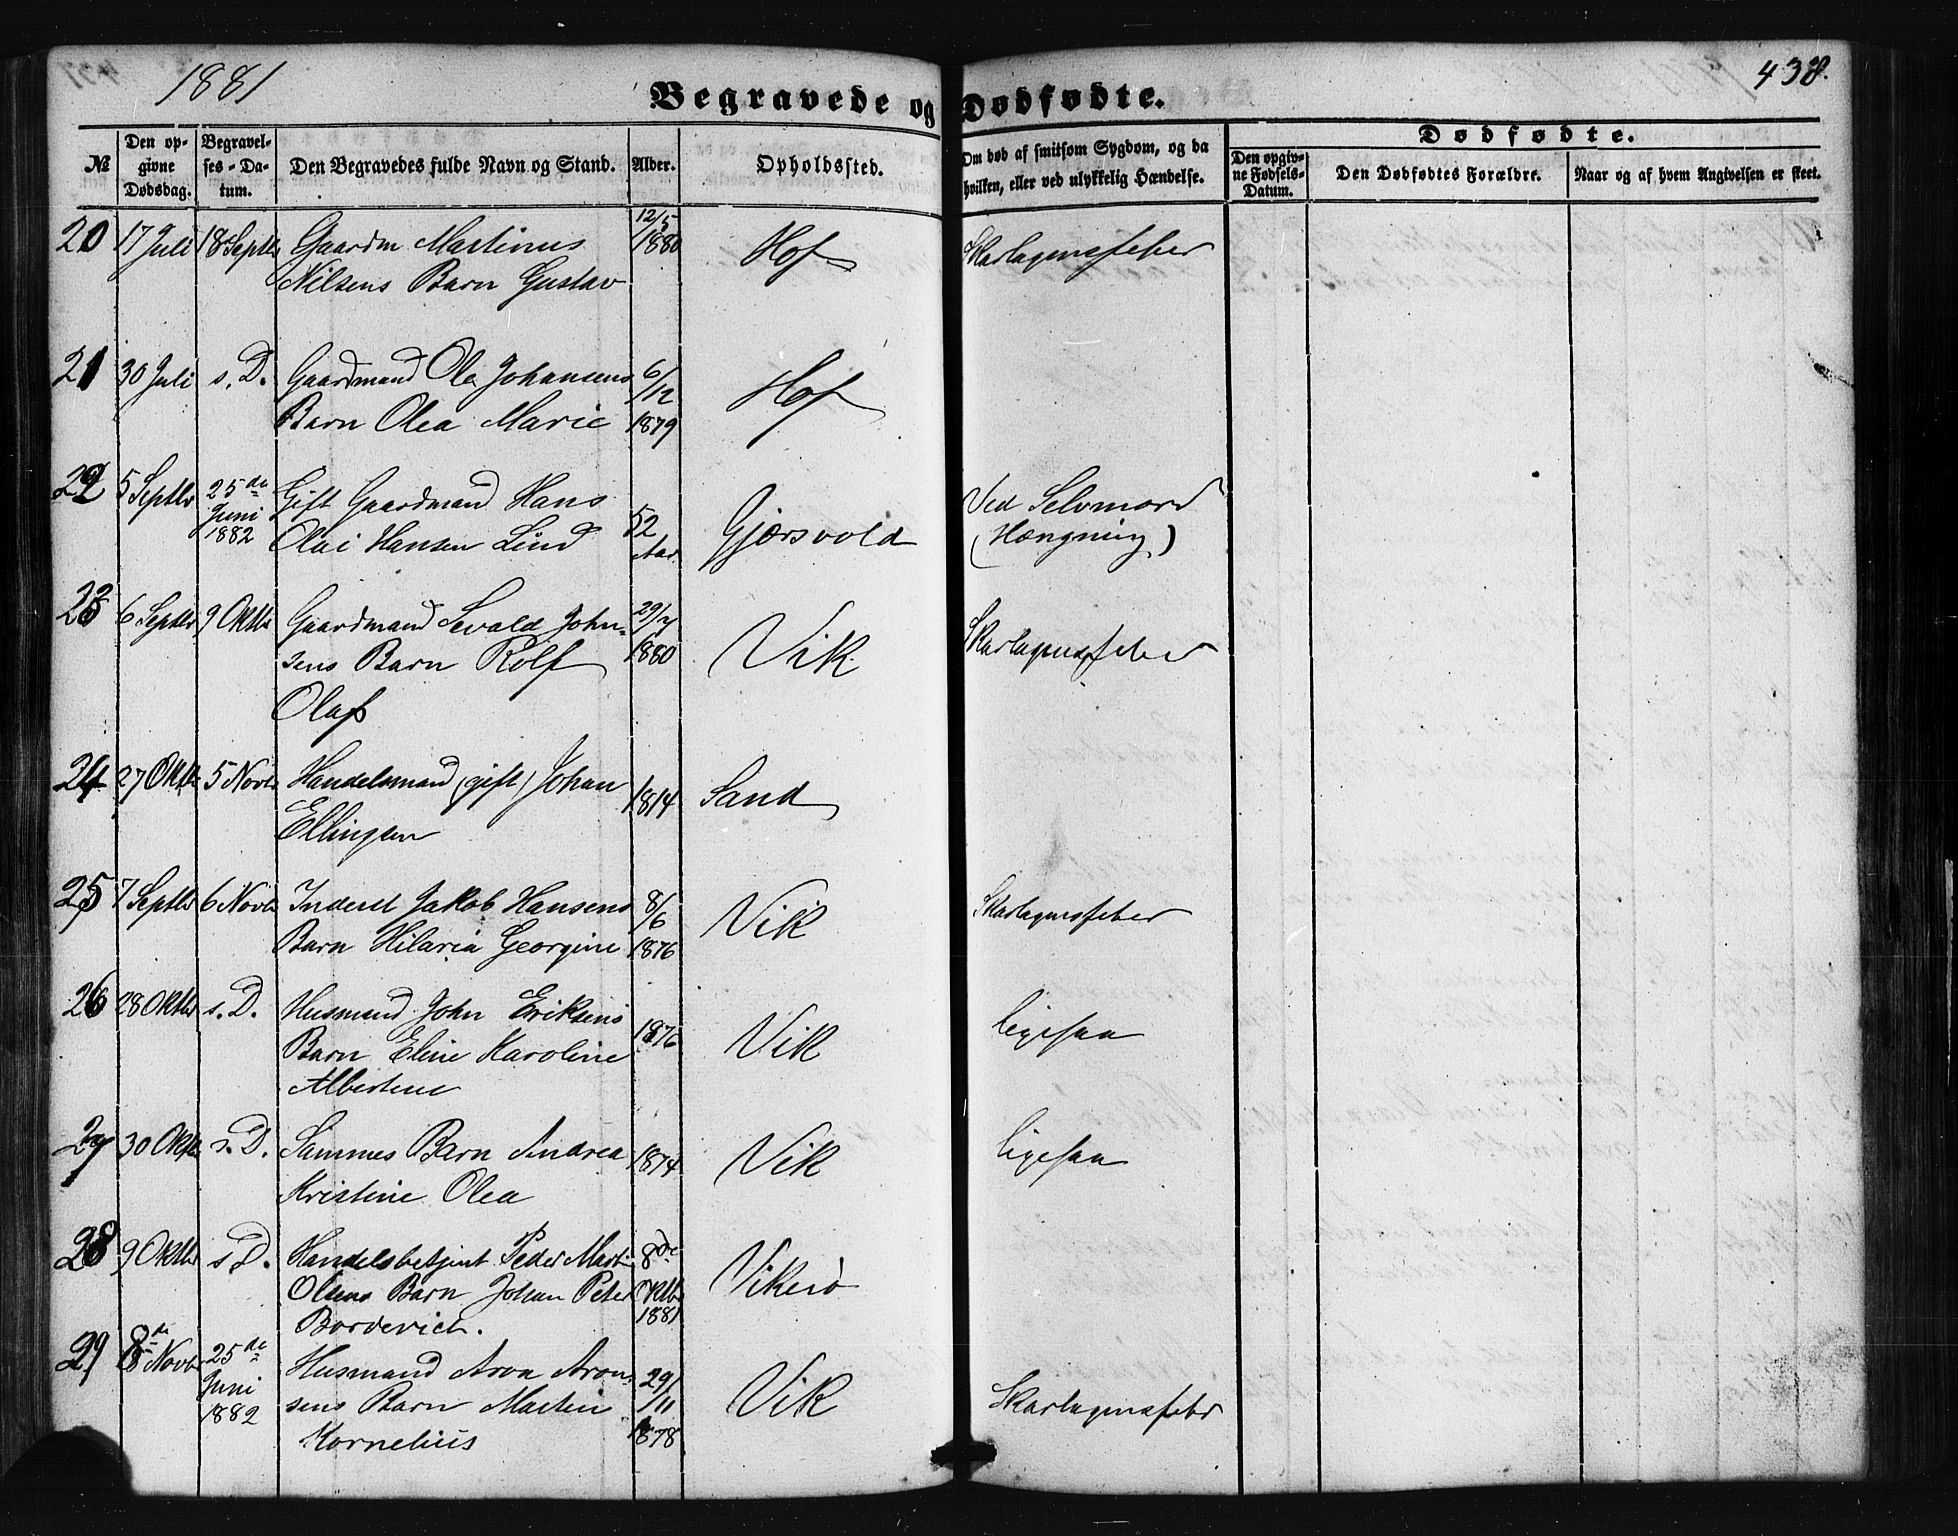 1881
438.
Begravede og Dødfødte.
№
Den opgivne Dødsdag.
Begravelses-Datum.
Den Begravedes fulde Navn og Stand.
Alder.
Opholdssted.
Om død af smitsom Sygdom, og da hvilken, eller ved ulykkelig Hændelse.
Dødfødte.
Den opgivne Fødsels-Datum.
Den Dødfødtes Forældre.
Naar og af hvem Angivelsen er skeet.
20 17 Juli 18 Septbr Gaardm Martinus 12/5 1880 Hof Skarlagensfeber
Nilsens Barn Gustav
21 30 Juli s. D. Gaardmand Ole Johansens 6/12 1879 Hof
Barn Olea Marie
22 5 Septbr 25de Juni 1882 Gift Gaardmand Hans 52 Aar Gjersvold Ved Selvmord
Olai Hansen Lind (Hængning)
23 6 Septbr 9 Oktbr Gaardmand Sevald John- 29/7 1880 Vik Skarlagensfeber
sens Barn Rolf
Olaf
24 27 Oktbr 5 Novbr Handelsmand (gift) Johan 1814 Sand
Ellingsen
25 7 Septbr 6 Novbr Inderst Jakob Hansens 8/6 1876 Vik Skarlagensfeber
Barn Hilaria Georgine
26 28 Oktbr s. D. Husmand John Eriksens 1876 Vik ligesaa
Barn Eline Karoline
Albertine
27 30 Oktbr s. D. Sammes Barn Andrea 1874 Vik ligesaa
Kristine Olea
28 9 Oktbr s. D. Handelsbetjent Peder Martin 8de Oktb 1881 Vikerø
Olsens Barn Johan Peter
29 8de Novbr 25de Juni 1882 Husmand Aron Aron- 29/11 1878 Vik Skarlagensfebr
sens Barn Martin
Kornelius